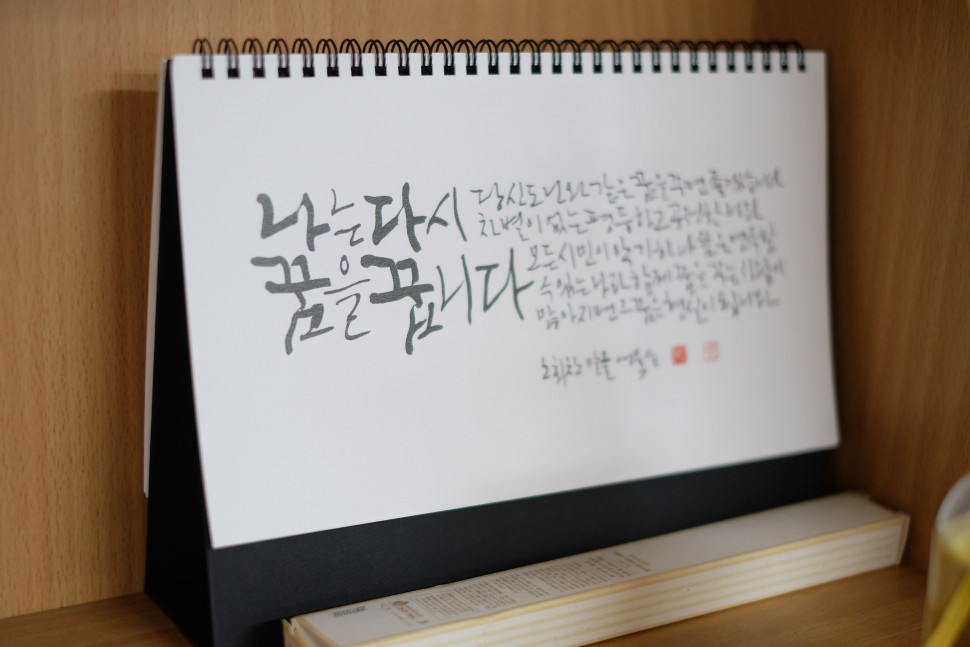 나는 다시
꿈을 꿉니다
당신도 나와 같은 꿈을 꾸면 좋겠습니다
차별이 없는 평등하고 공정한 나라
모든 시민이 악기 하나쯤은 연주할
수 있는 나라 함께 꿈을 꾸는 사람이
많아지면 그 꿈은 현실이 됩니다
노회찬